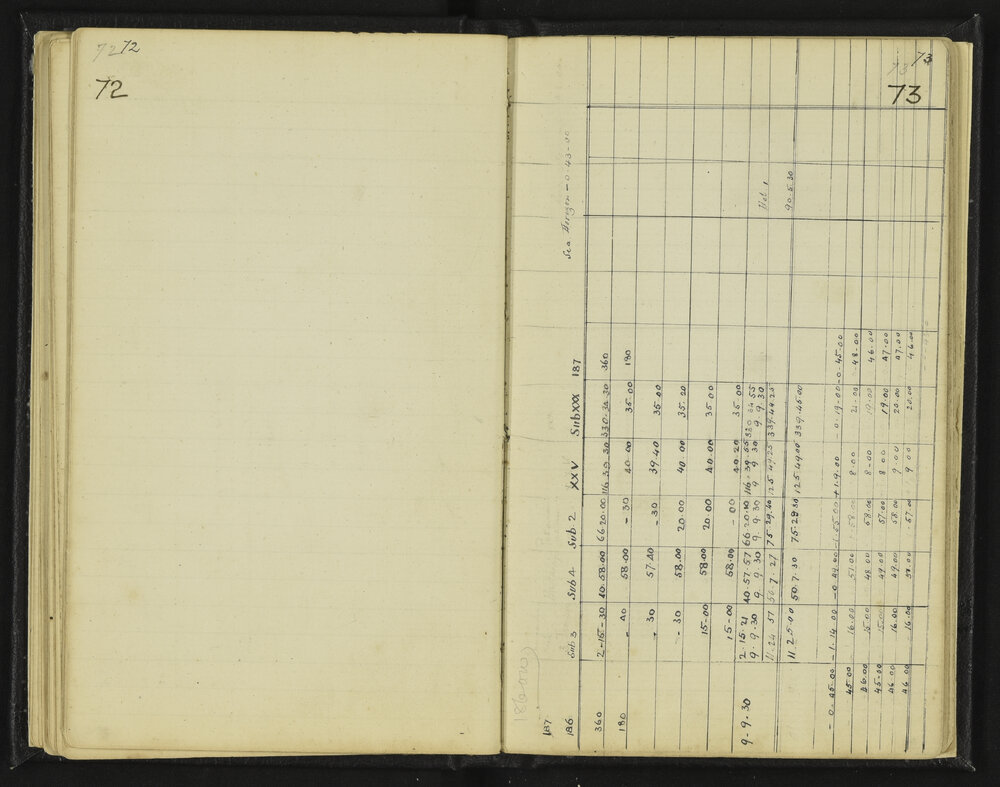 72 72
72
73 73
73
187
186 Sub 3 Sub 4 Sub 2 XXV Sub XXX 187 Sea Horizon - 0.43-00
360 2-15-30 40.58.00 66.20.00 116.39.30 330.34.30 360
180 - 40 58.00 - 30 40.00 35.00 180
- 30 57.40 - 30 39.40 35.00
- 30 58.00 20.00 40.00 35.20
15-00 58.00 20.00 40.00 35.00
15-00 58.00 - 00 40.20 35.00
9-9.30 2.15.21 40.57.57 66.20.10 116.39.55 330 34 55
9.9.30 9.9.30 9.9.30 9 9 30 9.9.30
11.24 57 50.7.27 75.29.40 125.49.25 339.44.25
11 25.00 50.7.30 75.29.30 125.49.00 339.45.00 90.5.30
- 0.45.00 - 1.14.00 - 0.49.00 - 1.55.00 + 1.9.00 - 0.19.00 - 0.45.00
45.00 16.00 51.00 58.00 8.00 21.00 48.00
46.00 15.00 48.00 58.00 8-00 19.00 46.00
45-00 15.00 49.00 57.00 8.00 19.00 47.00
46.00 16.00 49.00 58.00 9.00 20.00 47.00
46.00 16.00 50.00 57.00 9.00 20.00 46.00